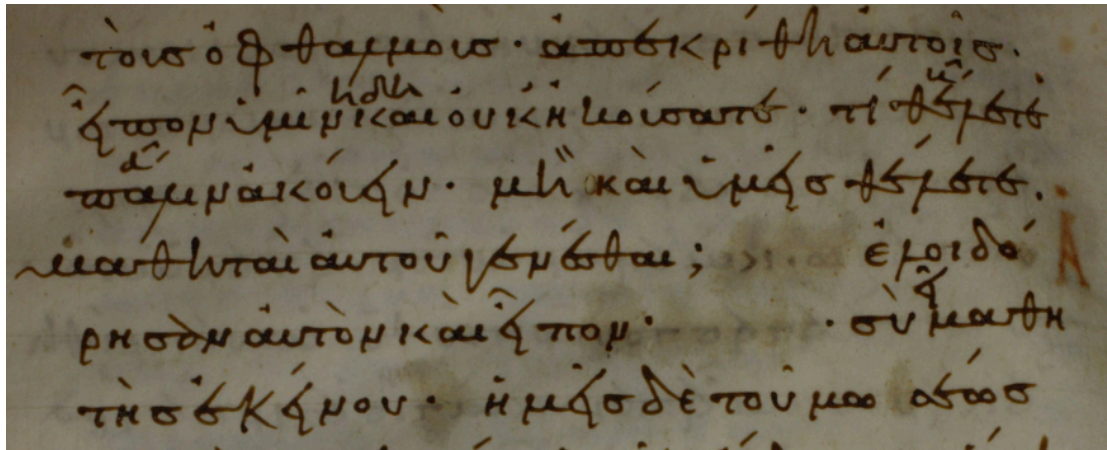 τοὺσ ὀφθαλμούσ · ἀπεκρίθη αὐτοῖσ ·
εἶπον ὑμῖν ἤδη καὶ οὐκ ἠκούσατε · τί οὖν θέλετε
πάλιν ἀκούειν · μὴ καὶ ὑμεῖσ θέλετε ·
μαθηταὶ αὐτοῦ γενέσθαι ; ἐλοιδό
ρησαν αὐτὸν καὶ εἶπον · · σὺ εἶ μαθη
τὴσ ἐκείνου · ἡμεῖσ δὲ τοῦ μωσέωσ